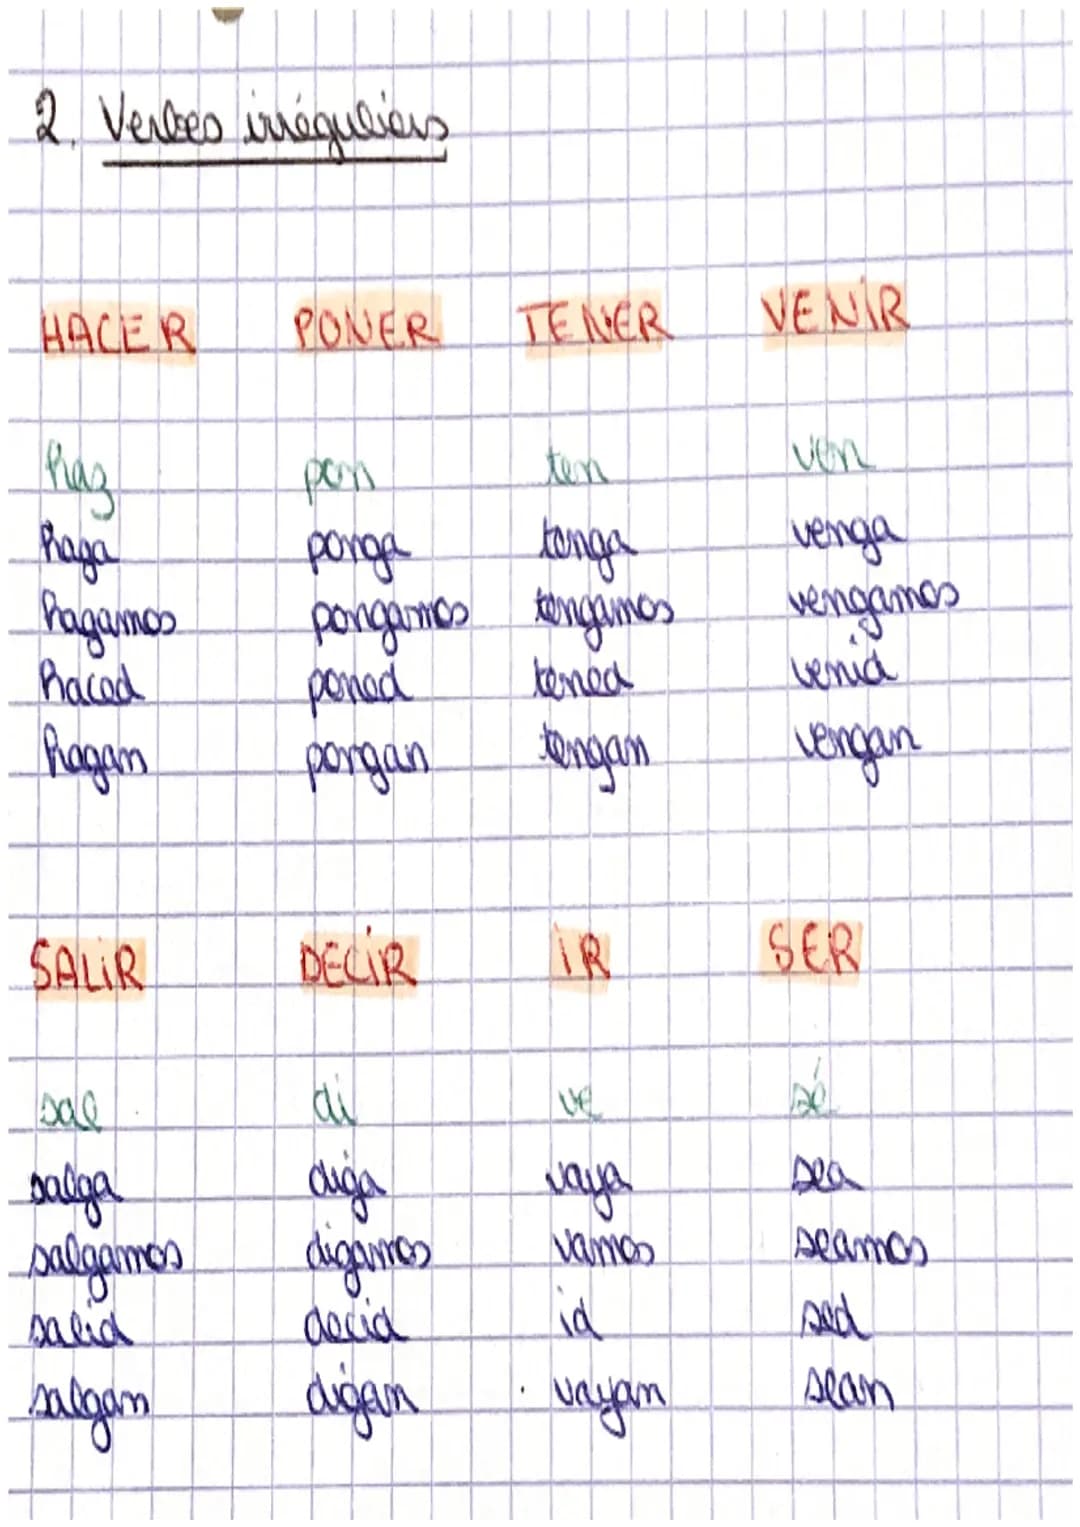 2. Verbes irréguliers
HACER PONER TENER VENIR
haz pon ten ven
haga ponga tenga venga
hagamos pongamos tengamos vengamos
haced poned tened venid
hagan pongan tengan vengan
SALIR DECIR IR SER
sal di ve sé
salga diga vaya sea
salgamos digamos vamos seamos
salid decid id sed
salgan digan vayan sean